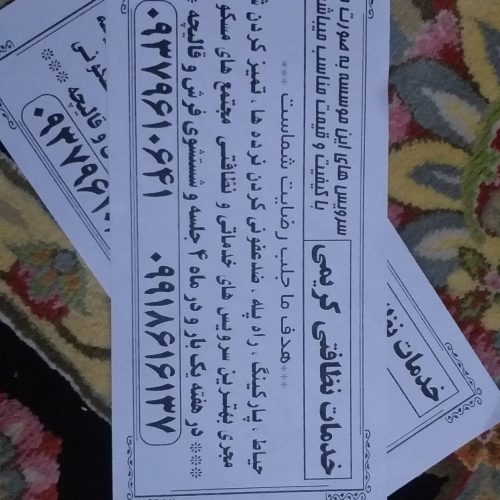 خدمات نظافتی کریمی
سرویس های این موسسه به صورت
با کیفیت و قیمت مناسب میباشد
***هدف ما جلب رضایت شماست***
حیاط ، پارکینگ ، راه پله ، ضدعفونی کردن نرده ها ، تمیز کردن
مجری بهترین سرویس های خدماتی و نظافتی مجتمع های
*** در هفته یک بار و در ماه ۴ جلسه و شستشوی فرش و قالیچه
۰۹۹۱۸۶۱۶۱۳۷
۰۹۳۷۹۶۱۰۶۴۱
خدمات
و قالیچه ***
۰۹۳۷۹۶۱